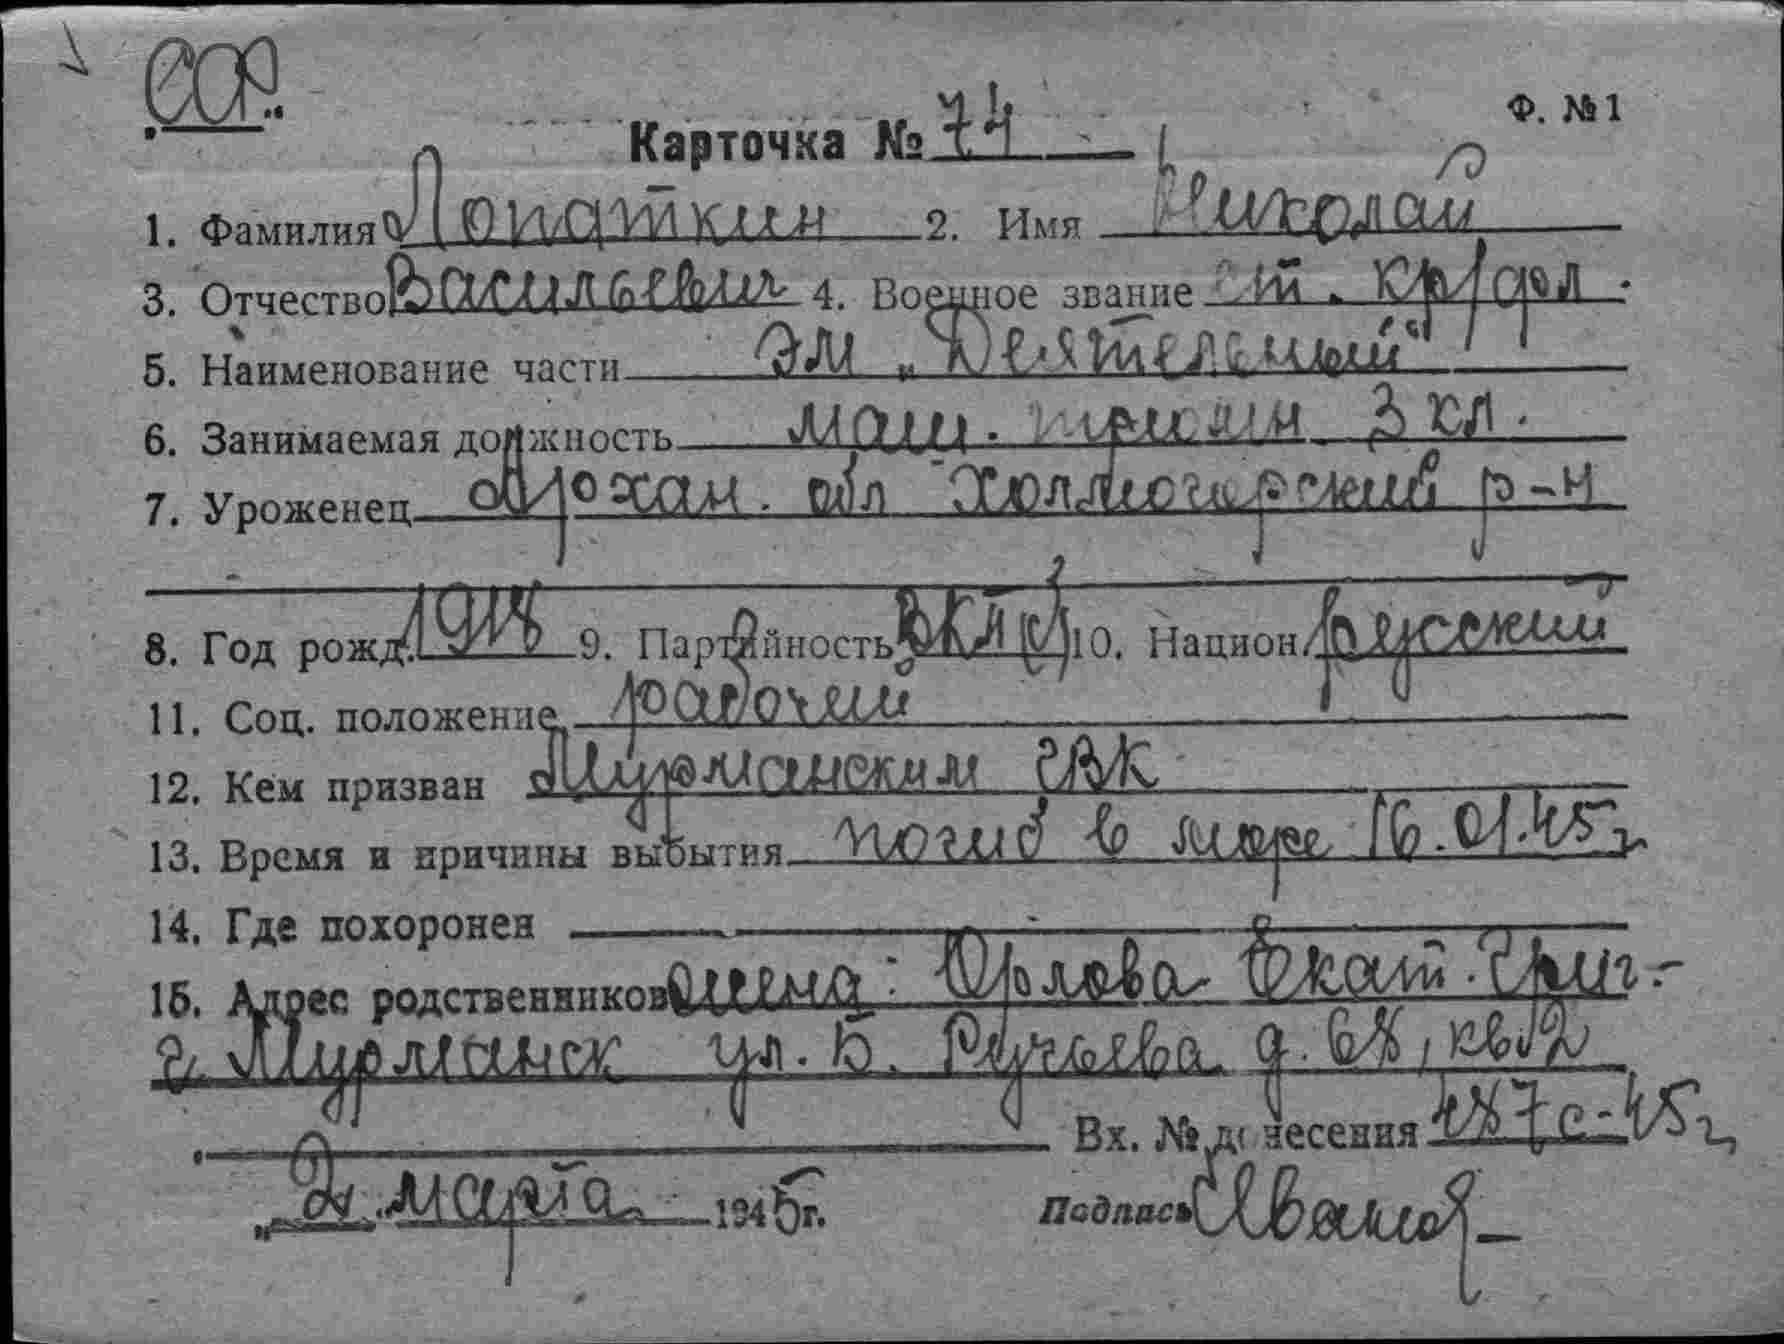 ССР.
Ф. №1
Карточка № 74
1. Фамилия Лопаткин 2. Имя Николай
3. Отчество Васильевич 4. Военное звание ст. кр/фл.
5. Наименование части ЭМ „Деятельный"
6. Занимаемая должность маш. турбин 3 кл.
7. Уроженец Архан. обл Холмогорский р-н
8. Год рожд. 1918 9. Партийность ВКП(б) 10. Национ. русский
11. Соц. положение рабочий
12. Кем призван Мурманским ГВК
13. Время и причины выбытия погиб в море 16.01.45г
14. Где похоронен
15. Адрес родственников жена: Орлова Екат. Григ.-
г. Мурманск ул. Б. Ручьева д. 68, кв 12
Вх. № донесения 487с-45г
„2" марта 1945г. Подпись Иванов